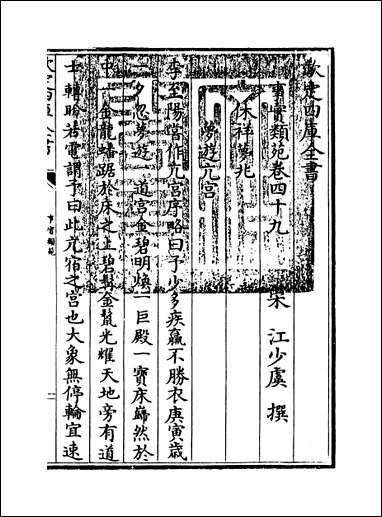 欽定四庫全書
事實類苑卷四十九
宋 江少虞 撰
休祥夢兆
夢遊亢宮
李至陽嘗作亢宮序略曰予少多疾羸不勝衣庚寅歳
一夕忽夢遊一道宫金碧明煥一巨殿一寳床巋然於
中一金龍蟠踞於床之上碧髯金鬣光耀天地旁有道
士轉盼若電謂予曰此亢宿之宫也大象無停輪宜速
事實類苑